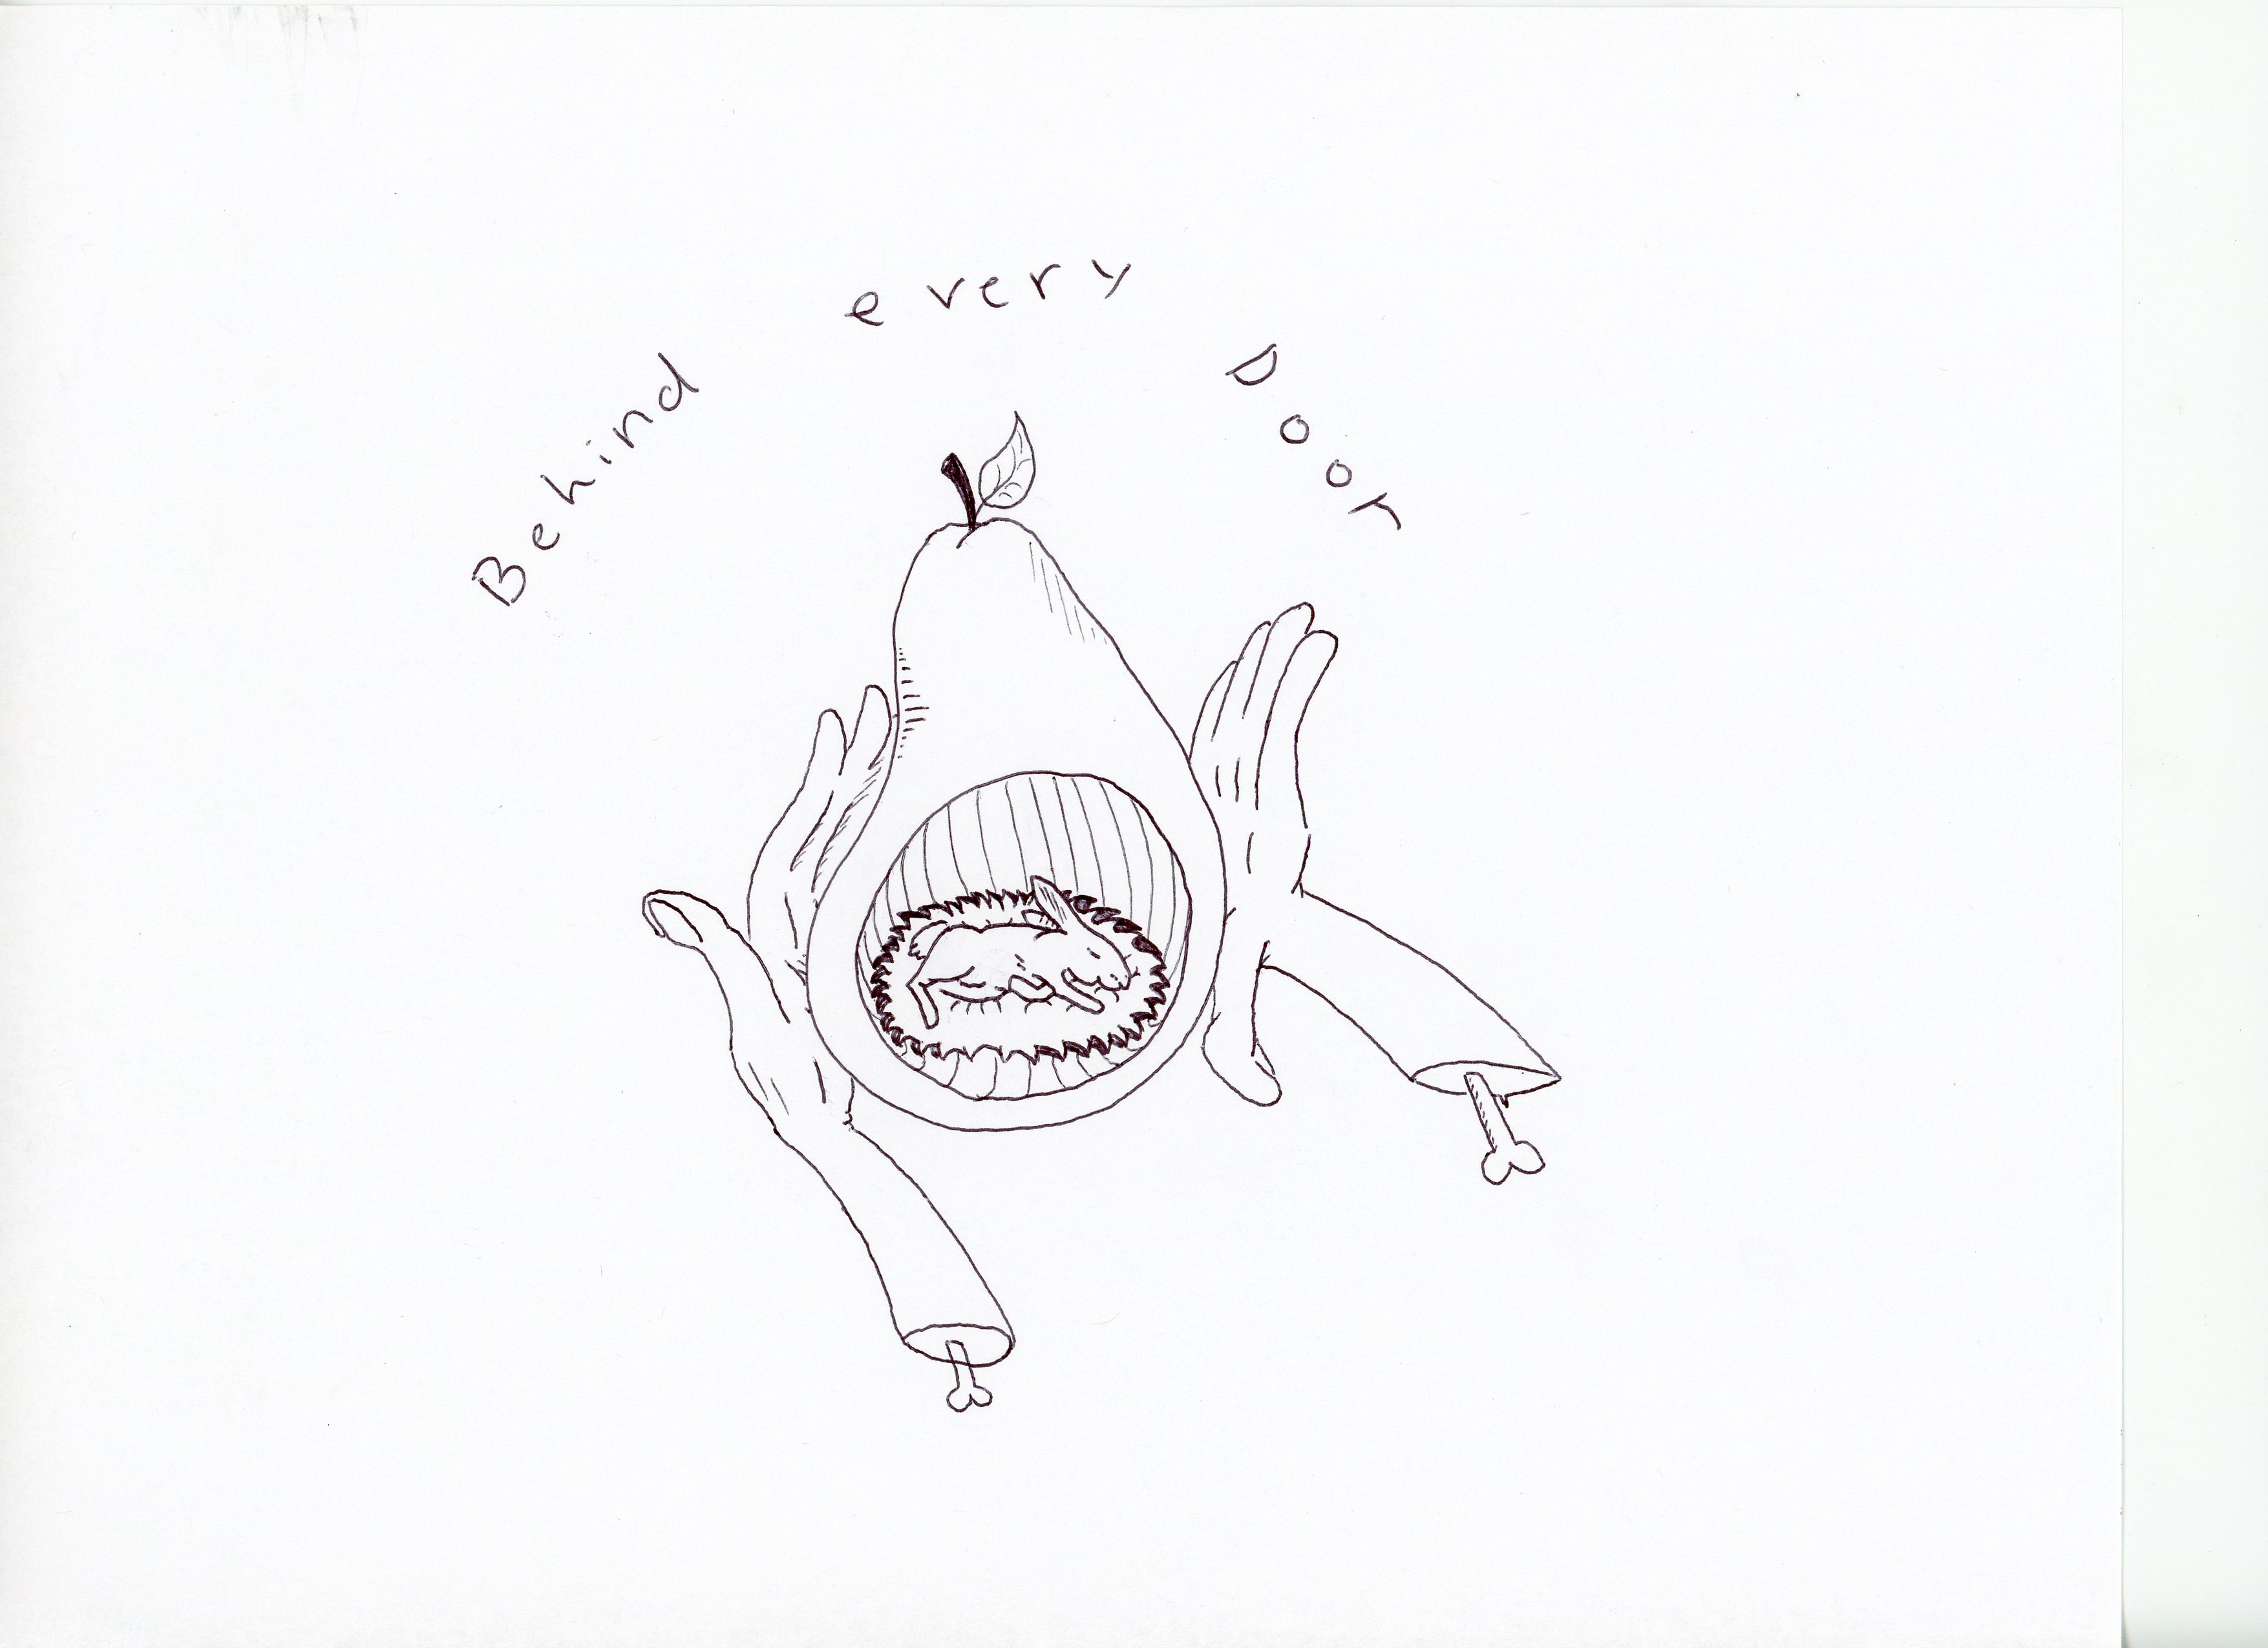 Behind every Door